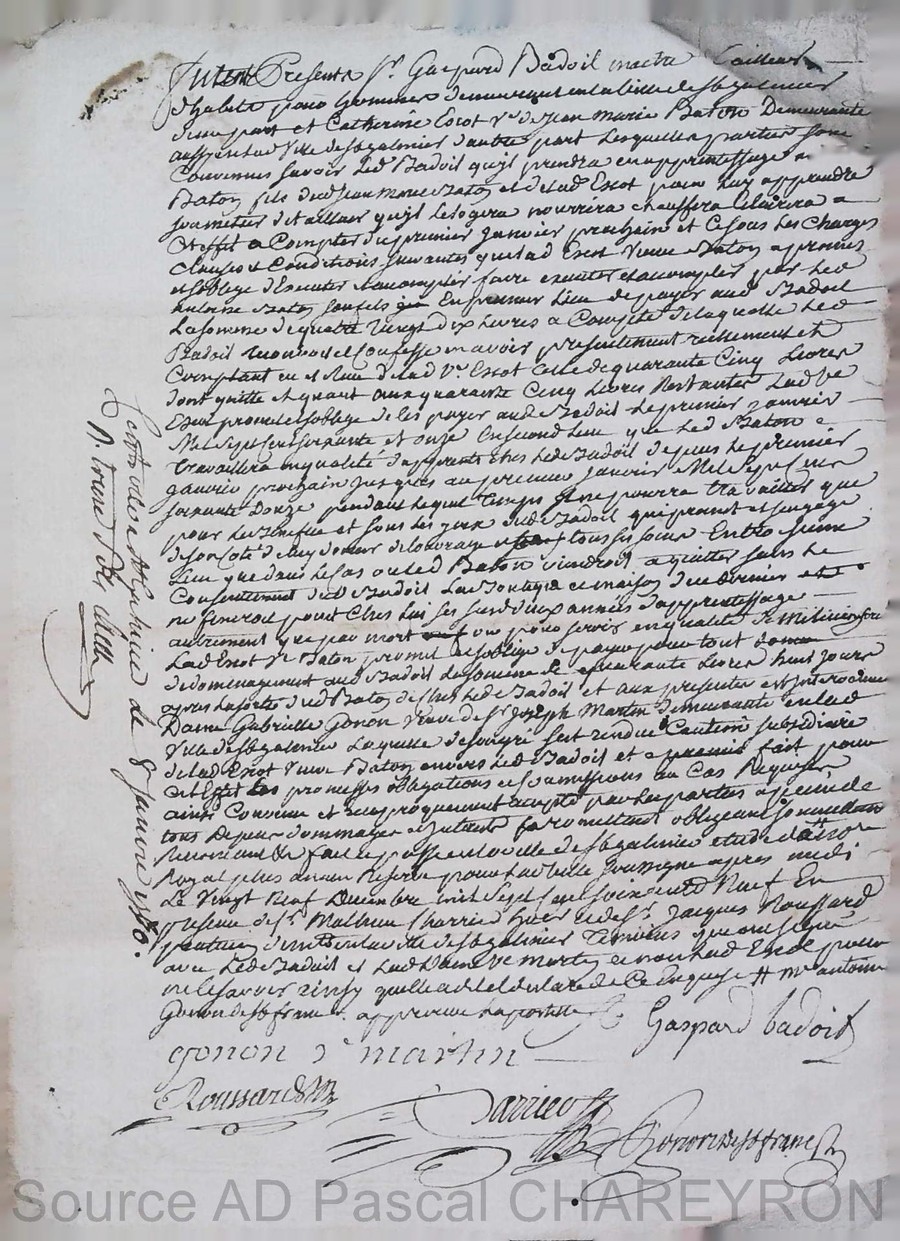 furent Presents Sr. Gaspard Badoil maitre tailleur
d'habits pour hommes demeurant en la ville de st galmier
d'une part et Catherine Escot Ve de Jean Marie Baton Demeurante
aussy en lad ville de st galmier d'autre part Lesquelles parties sont
Convenues Savoir Led Badoil qu'il prendra en apprentissage
Baton fils dud Jean Marie Baton et de lad Escot pour luy apprendre
son metier de tailleur qu'il le logera nourrira chauffera Eclairera a
Cet effet a Compter du premier janvier prochain et Ce sous Les Charges
Clauses et Conditions suivantes que lad Escot Veuve Baton a promis
et s'oblige d'Executer et accomplir faire executer et accomplir par led
antoine Baton son fils En premier Lieu de payer aud Badoil
La somme de quatre Vingt dix Livres a Compte de laquelle Led
Badoil reconnoit et Confesse avoir presentement reellement et
Comptant eu et Reçu de lad Ve Escot Celle de quarante Cinq Livres
dont quitte et quant aux quarante Cinq Livres Restantes Lad Ve
Escot promet et s'oblige de les payer aud Badoil Le premier Janvier
Mil Sept Cent soixante et onze En second Lieu que Led Baton
travaillera en qualité d'apprenti chez Led Badoil depuis le premier
janvier prochain jusques au premier janvier Mil Sept Cent
soixante Douze pendant lequel temps il ne pourra travailler que
pour Le Benefice et sous les yeux dud Badoil qui promet et s'engage
de son Coté de luy donner de l'ouvrage tous les jours En troisieme
Lieu que dans le Cas ou led Baton viendroit a quitter sans le
Consentement dud Badoil La Boutique et maison de ce dernier et
ne finiroit point Chez lui ses sus deux années d'apprentissage
autrement que par mort ou pour servir en qualité de milicien
Lad Escot Ve Baton promet et s'oblige de payer pour tout
dedomagement aud Badoil La somme de quarante Livres huit jours
après La sortie dud Baton de Chez Led Badoil et aux presentes est Intervenue
Dame Gabrielle Gonon Veuve de Sr Joseph Martin demeurante en lad
Ville de st galmier Laquelle de son gré s'est rendue Caution subsidiaire
de lad Escot Veuve Baton envers Led Badoil et a promis fait pour
Cet Effet les promesses obligations et soumissions au Cas Requises
ainsi Convenu et reciproquement accepté par les parties a peine de
tous Depens dommages et interets promettant obligeant soumettant
Renonçant & fait et passé en la ville de st galmier etude
Royal plus ancien Reservé pour soussigné apres midi
Le Vingt Neuf Decembre mil sept Cent soixante Neuf En
presence de Sr Mathieu et de Sr Jacques Roussard
praticien demeurant en la ville de st galmier Temoins
avec Led Badoil et Lad Dame Ve Martin et non Lad Escot pour
ne le savoir ainsy quelle a dit et declaré de Ce Enquise # me antoine
Gonon de st franc. approuvé La postille
Gaspard badoil
gonon ve martin
Roussard
Gonon de st franc
Controlé a st galmier le 8 Janvier 1770.